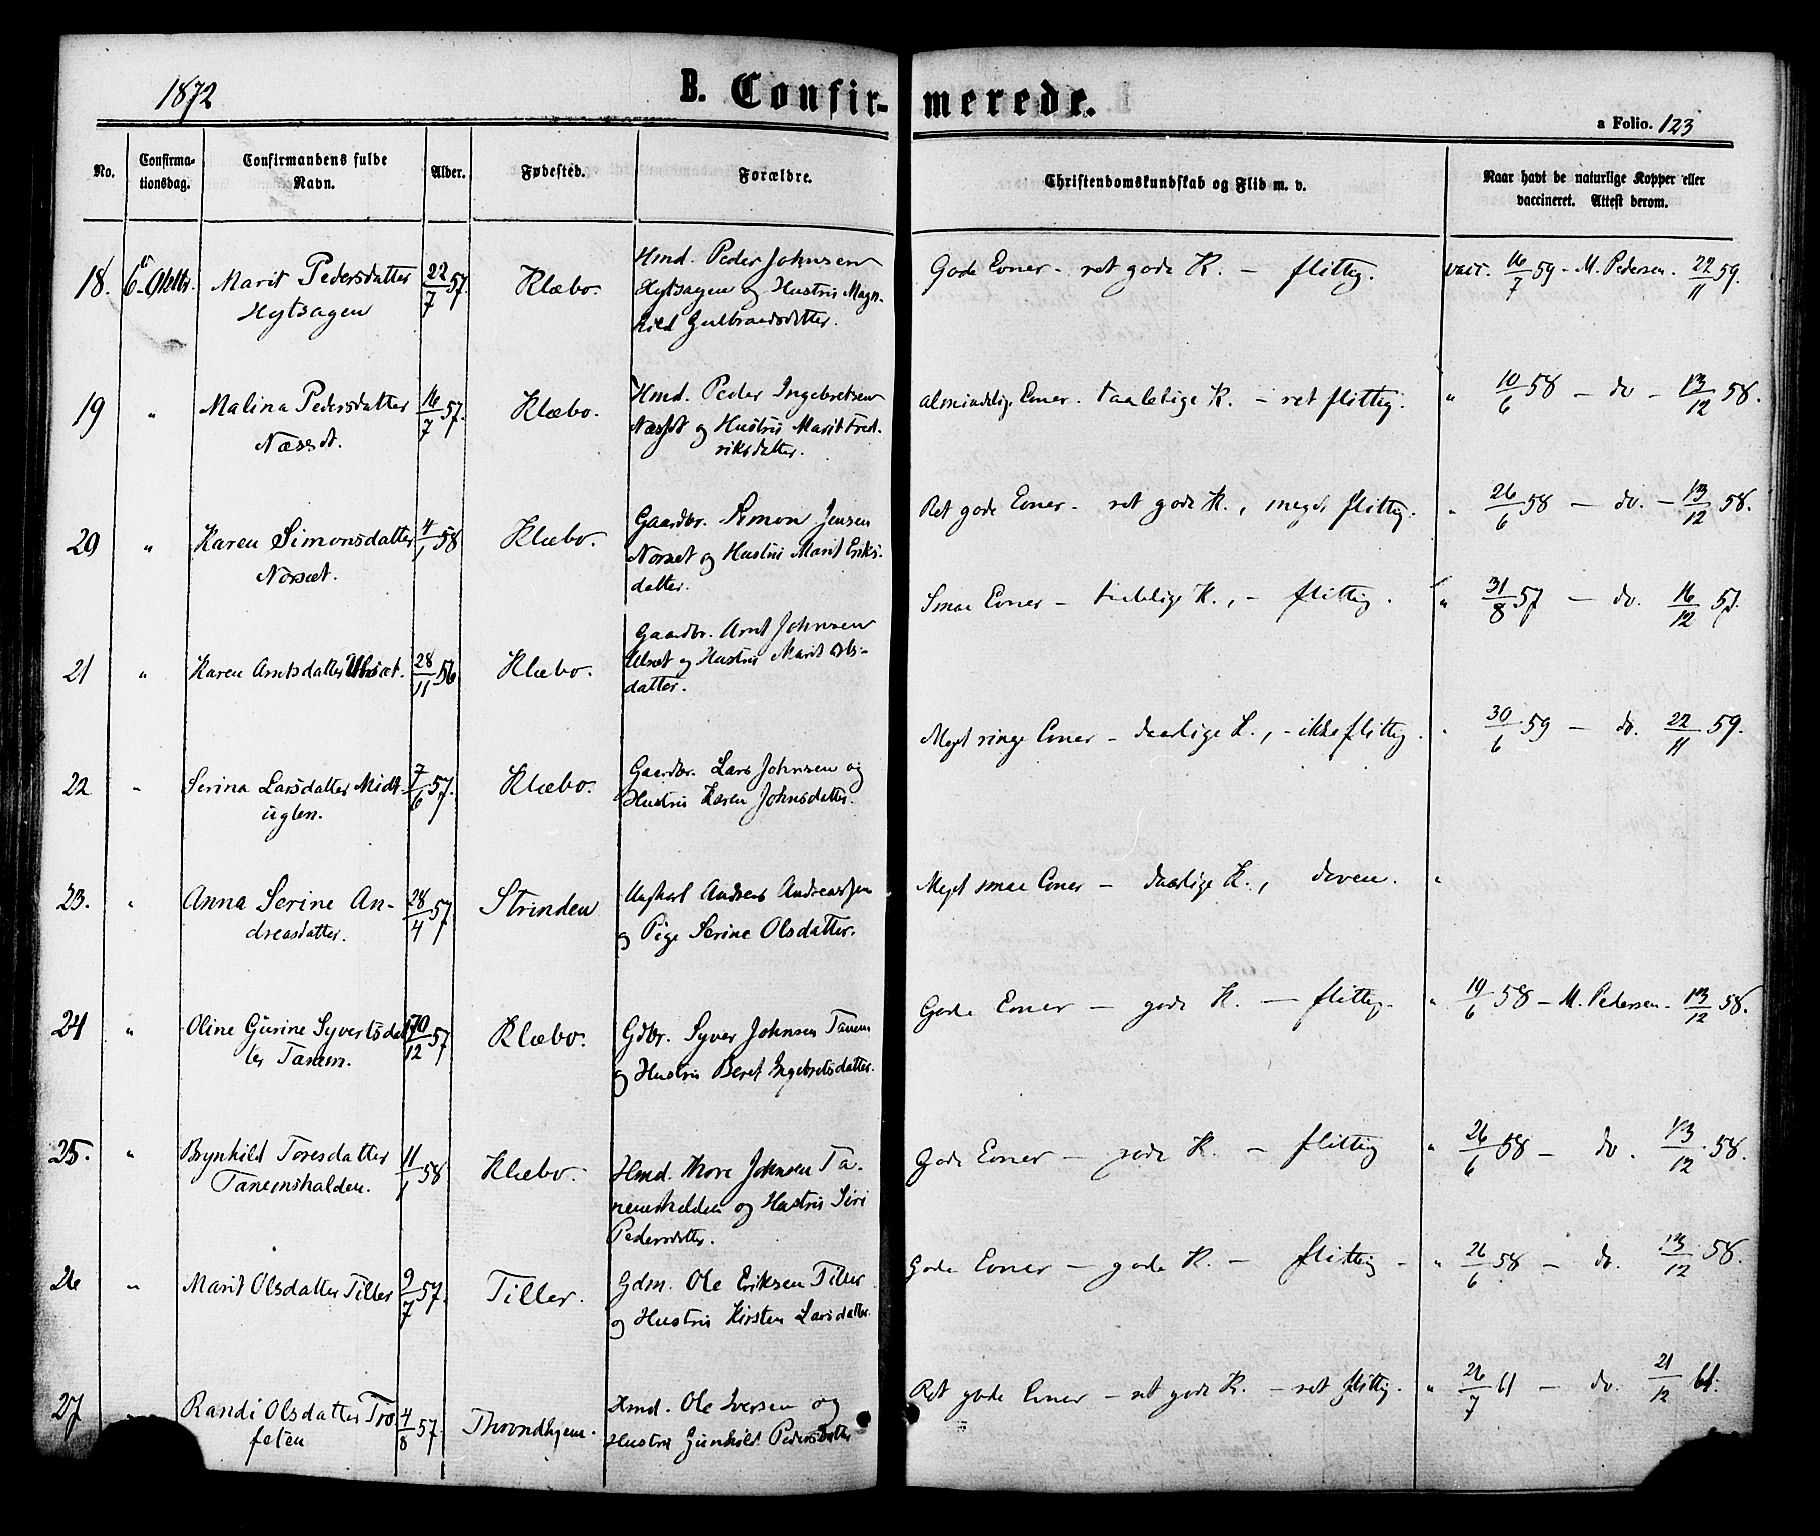 1872
B. Confirmerede.
a Folio. 123
No.
Confirma-
tionsdag.
Confirmandens fulde
Navn.
Alder.
Fødested.
Forældre.
Christendomskundskab og Flid m. v.
Naar havt de naturlige Kopper eller
vaccineret. Attest derom.
18. 6 Octbr. Marit Pedersdatter 22/7 57. Klæbo. Hmd. Peder Johnsen Gode Evner - ret gode K. - flittig. vacc. 16/7 59 - M. Pedersen. 22/11 59.
Hytsagen Hytsagen og Hustru Magn-
hild Gulbrandsdatter.
19 " Malina Pedersdatter 16/7 57. Klæbo. Hmd. Peder Ingebretsen almindelige Evner. taalelige K. - ret flittig. " 10/6 58 - do - 13/12 58.
Næsset. Næsset og Hustru Marit Fred-
riksdatter.
20 " Karen Simonsdatter 4/1 58 Klæbo. Gaardbr. Simon Jensen Ret gode Evner - ret gode K., meget flittig. " 26/6 58 - do. - 13/12 58.
Norset. Norset og Hustru Marit Eriks-
datter.
21 " Karen Arntsdatter Ulsæt. 28/11 56. Klæbo. Gaardbr. Arnt Johnsen Smaa Evner - K., - flittig. " 31/8 57 - do. 16/12 57.
Ulset og Hustru Marit Ols-
datter.
22 " Serina Larsdatter Midt- 7/6 57. Klæbo. Gaardbr. Lars Johnsen og Meget ringe Evner - daarlige K., - ikke flittig. " 30/6 59 - do. 22/11 59.
uglen. Hustru Karen Johnsdatter.
23. " Anna Serine An- 28/4 57. Strinden Ungkarl Andreas Andreassen Meget smaa Evner - daarlige K., doven. "
dreasdatter. og Pige Serine Olsdatter.
24 " Oline Gurine Syvertsdat- 10/12 57. Klæbo. Gdbr. Syver Johnsen Tanem Gode Evner - gode K. - flittig. " 19/6 58 - M. Pedersen - 13/12 58.
ter Tanem. og Hustru Beret Ingebretsdatter.
25. " Brynhild Toresdatter 11/1 58 Klæbo. Hmd. Thore Johnsen Ta- Gode Evner - gode K. - flittig " 26/6 58 - do. 13/12 58.
Tanemshalden. nemshalden og Hustru Siri
Pedersdatter.
26 " Marit Olsdatter Tiller 9/7 57. Tiller. Gdm. Ole Eriksen Tiller Gode Evner - gode K. - flittig - " 26/6 58 - do. 13/12 58.
og Hustru Kirsten Larsdatter.
27 Randi Olsdatter Tro- 4/8 57. Throndhjem. Hmd. Ole Iversen og Ret gode Evner - ret gode K. - ret flittig. " 26/7 61 - do. 21/12 61.
feten Hustru Gunhild Pedersdatter